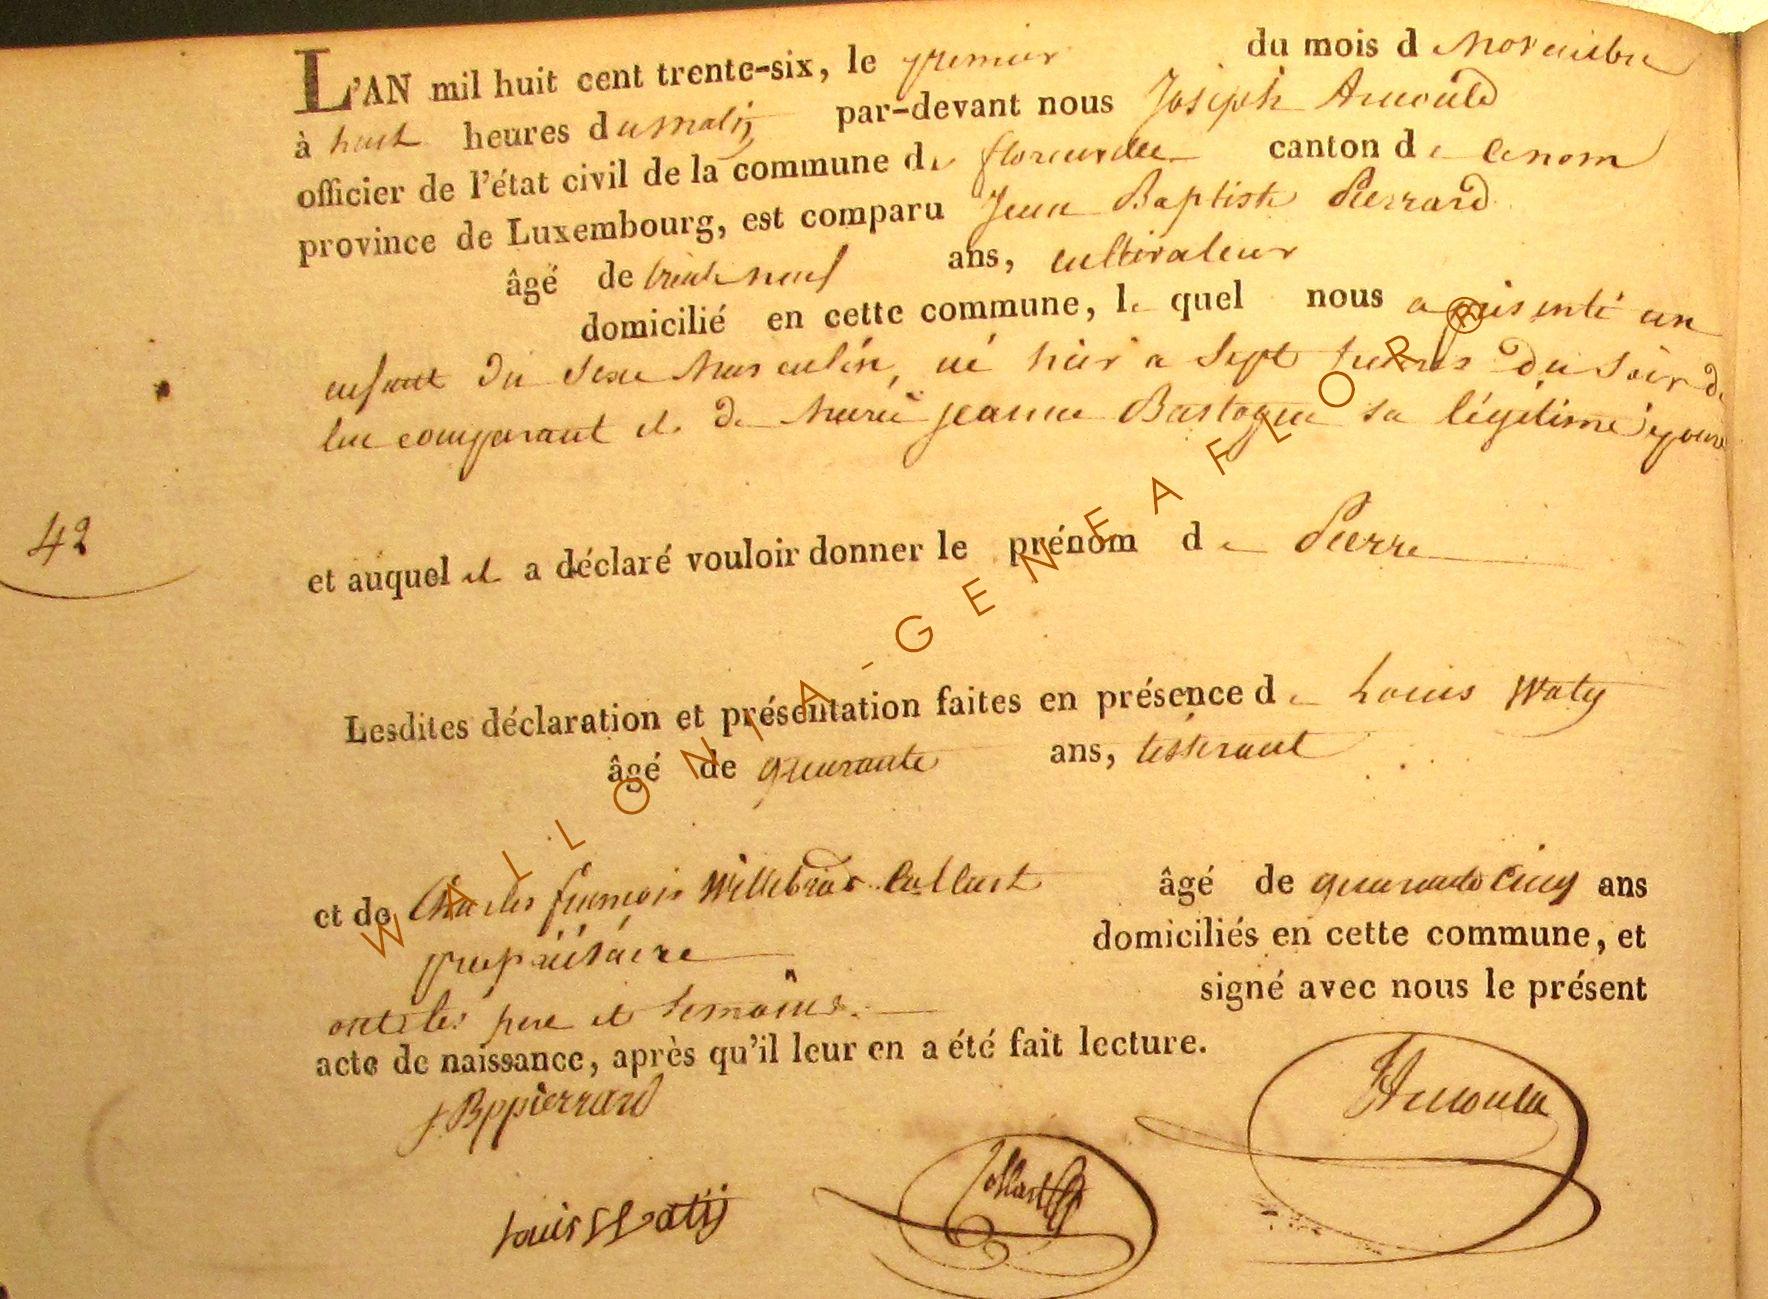 L'AN mil huit cent trente-six, le premier du mois de Novembre
à huit heures du matin par-devant nous Joseph Arnould
officier de l'état civil de la commune de florenville canton de
province de Luxembourg, est comparu Jean Baptiste Pierrard
âgé de trente neuf ans, cultivateur
domicilié en cette commune, le quel nous a présenté un
enfant du sexe Masculin, né hier a sept heures du soir de
lui comparant et de Marie jeanne Bastogne sa légitime épouse
42
et auquel il a déclaré vouloir donner le prénom de Pierre
Lesdites déclaration et présentation faites en présence de Louis Waty
âgé de quarante ans, tisserant
et de Charles françois Willebrod Collart âgé de quarante cinq ans
propriétaire domiciliés en cette commune, et
ont les père et témoins. signé avec nous le présent
acte de naissance, après qu'il leur en a été fait lecture.
JBpPierrard
Arnould
Louis Watij
Collart
WALLONIA-GENEAFLOR®